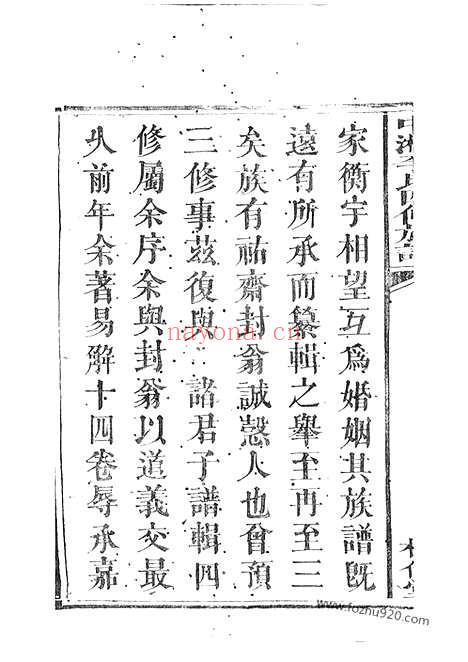 家衡宇相望互為婚姻其族譜旣
遠有所承而纂輯之舉至再至三
矣族有祐齋封翁誠慤人也曾預
三修事茲復與諸君子譜輯四
修屬余序余與封翁以道義交最
久前年余著易解十四卷辱承嘉
nayona.cn
www.fozhu920.com